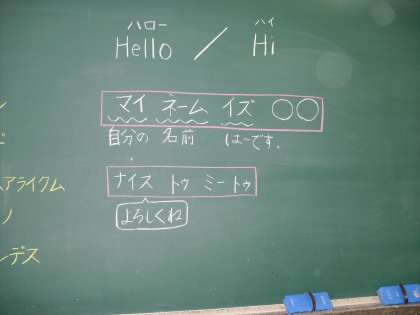 ハロー ハイ
Hello / Hi
マイ ネーム イズ ○○
自分の 名前 は～です.
アライクム
ナイス トゥ ミー トゥ
よろしくね
ノ
デス